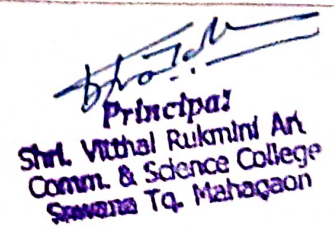 Principal
Shri. Vitthal Rukmini Art
Comm. & Science College
Sawana Tq. Mahagaon